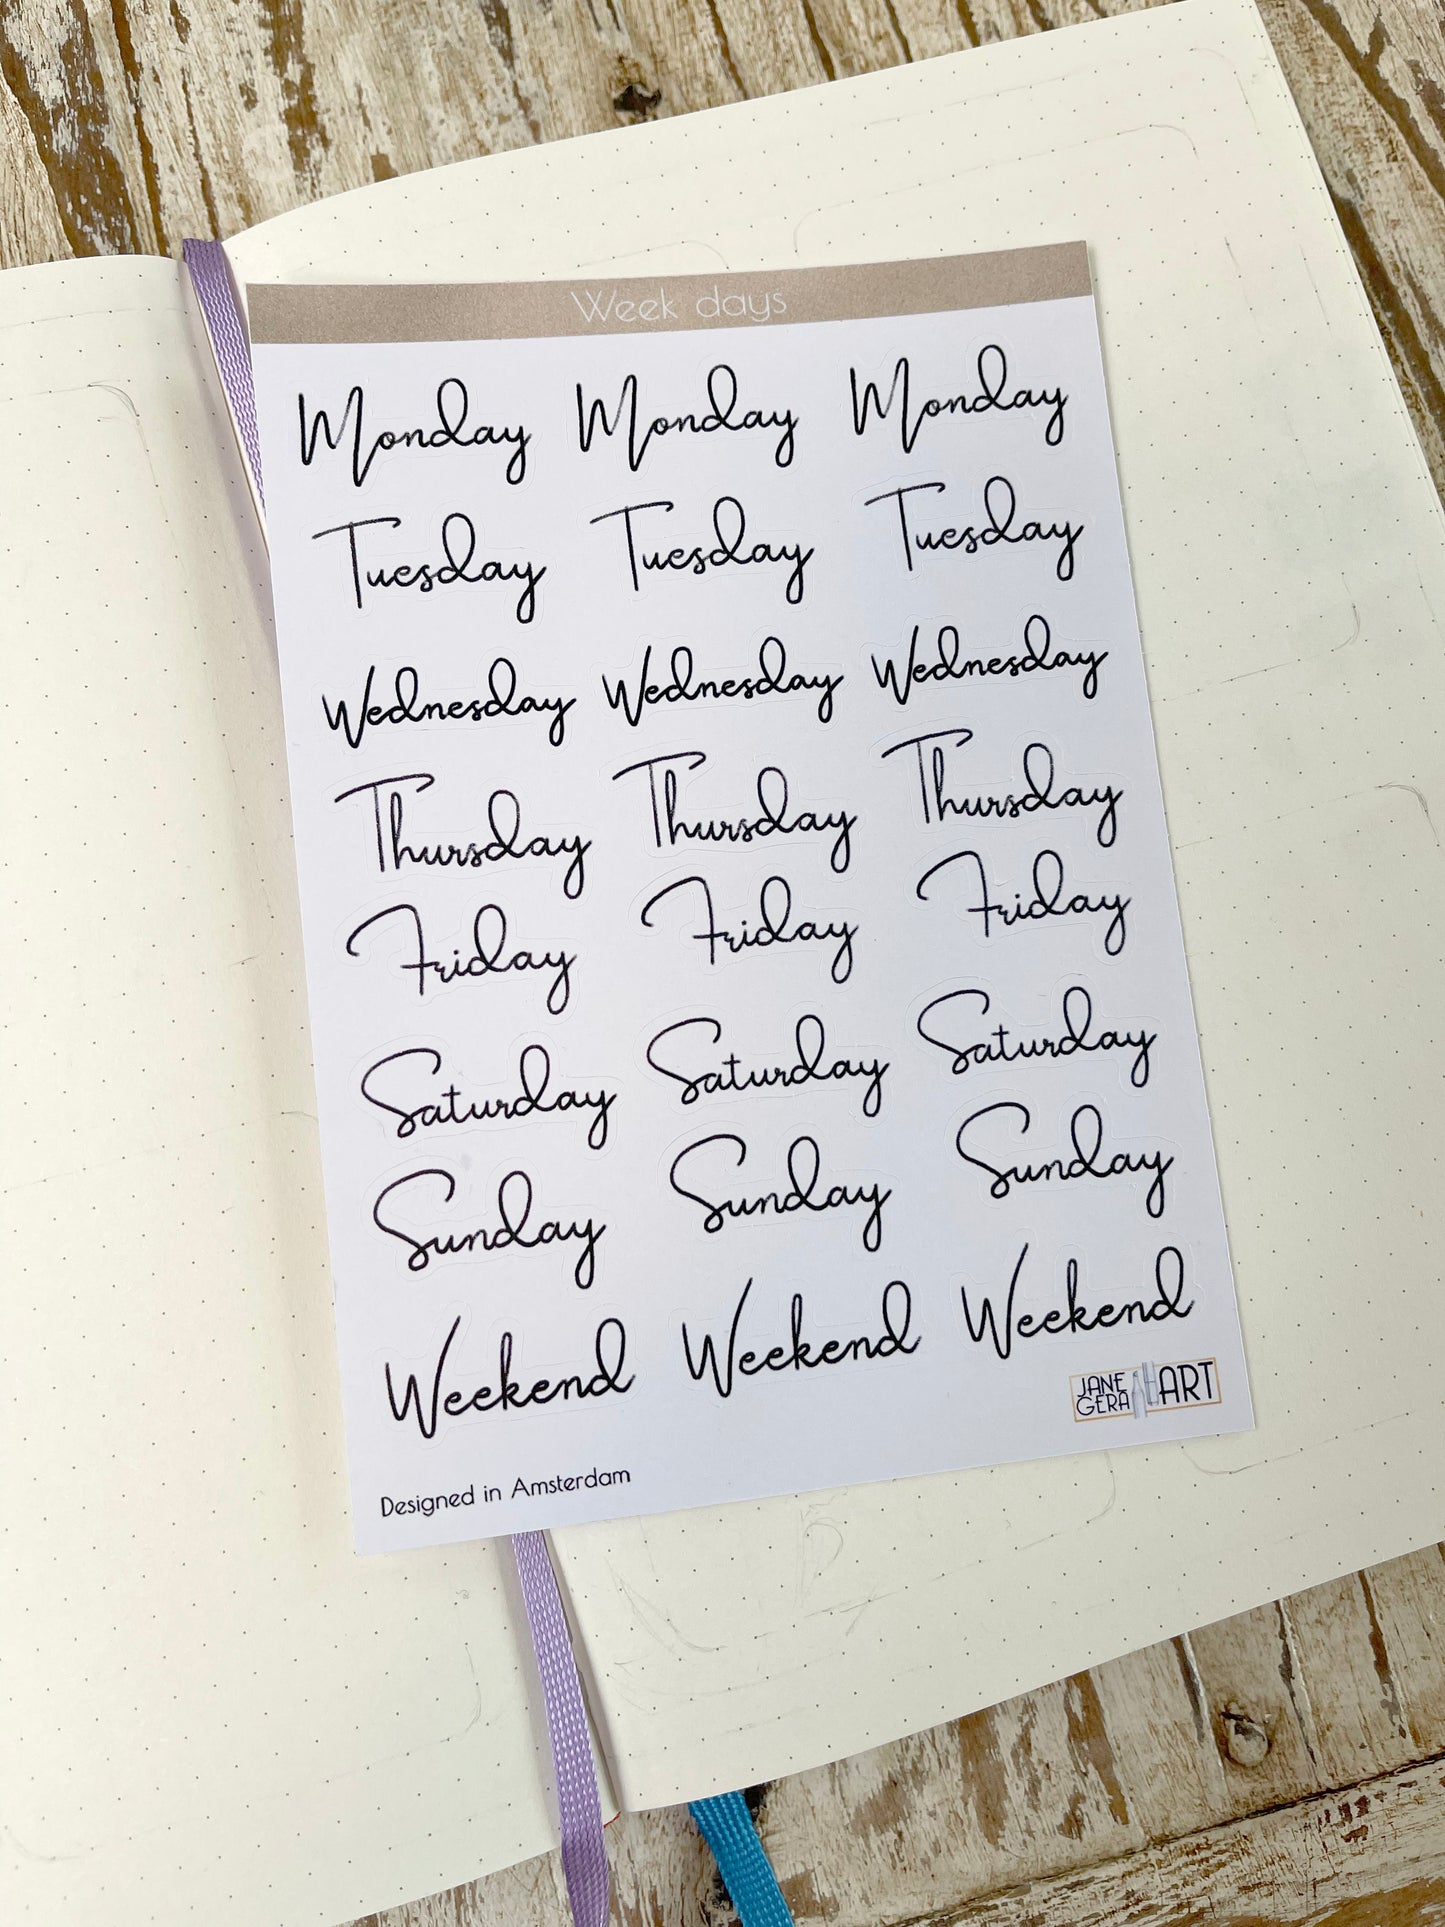 Week days
Monday Monday Monday
Tuesday Tuesday Tuesday
Wednesday Wednesday Wednesday
Thursday Thursday Thursday
Friday Friday Friday
Saturday Saturday Saturday
Sunday Sunday Sunday
Weekend Weekend Weekend
JANE
GERA ART
Designed in Amsterdam